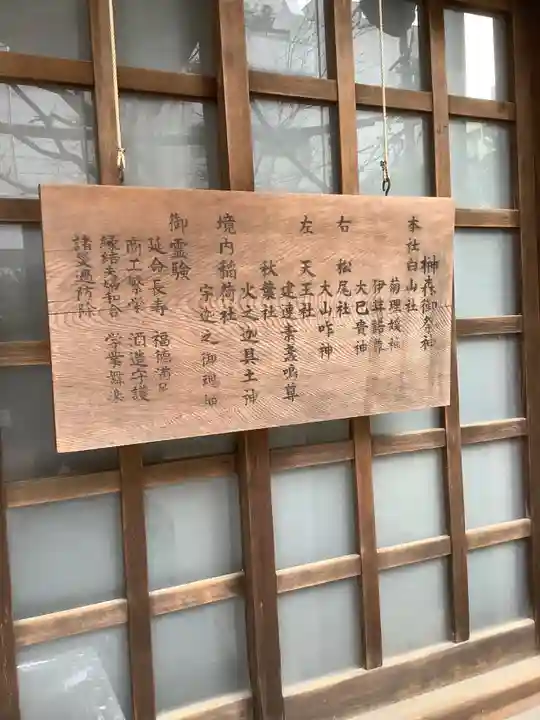 榊森御祭神
本社白山社
菊理媛神
伊弉諾尊
大巳貴神
右 松尾社
大山咋神
左 天王社
建速素盞鳴尊
秋葉社
火之迦具土神
境内稲荷社
宇迦之御魂神
御霊験
延命長寿 福徳満足
商工繁栄 酒造守護
縁結夫婦和合 学業舞楽
諸災過防除